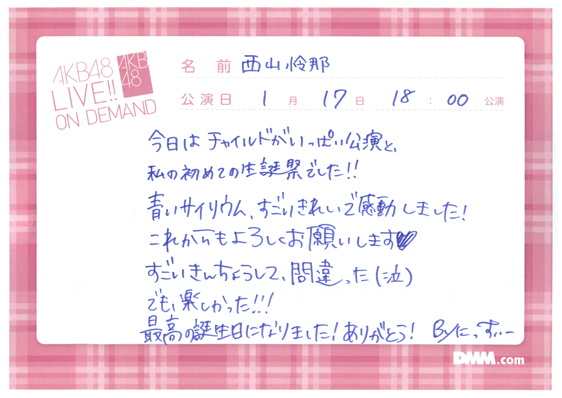 AKB48
LIVE!!
ON DEMAND
AKB
48
名前 西山怜那
公演日 1月17日 18:00 公演
今日は チャイルドがいっぱい公演と、
私の初めての生誕祭でした!!
青いサイリウム、すごいきれいで感動しました!
これからもよろしくお願いします♥
すごいきんちょうして、間違った(泣)
でも、楽しかった!!!
最高の誕生日になりました!ありがとう! Byにっすぃー
DMM.com